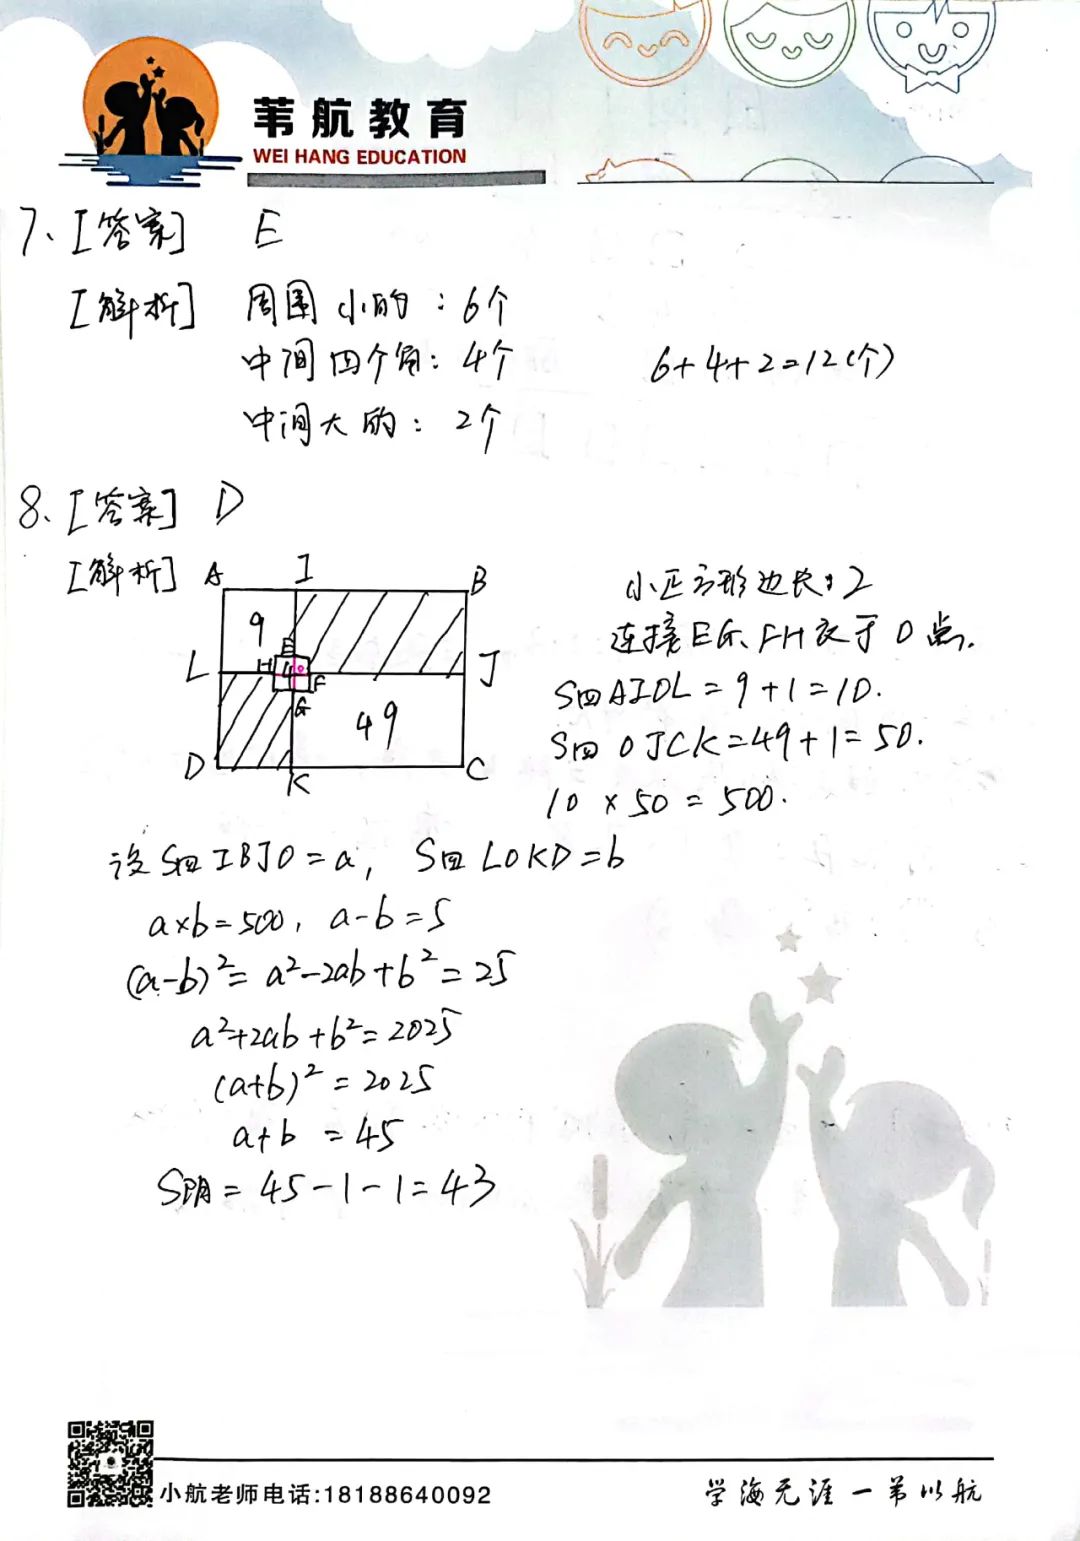 苇航教育
WEI HANG EDUCATION
7、[答案] E
[解析] 周围小的：6个
中间四个角：4个 6+4+2=12(个)
中间大的：2个
8、[答案] D
[解析] A I B
9
L H E 4 O F J
G
49
D K C
小正方形边长：2
连接EG、FH交于O点.
S四AIOL=9+1=10.
S四OJCK=49+1=50.
10×50=500.
设S四IBJO=a，S四LOKD=b
a×b=500，a-b=5
(a-b)²=a²-2ab+b²=25
a²+2ab+b²=2025
(a+b)²=2025
a+b=45
S阴=45-1-1=43
小航老师电话:18188640092
学海无涯一苇以航